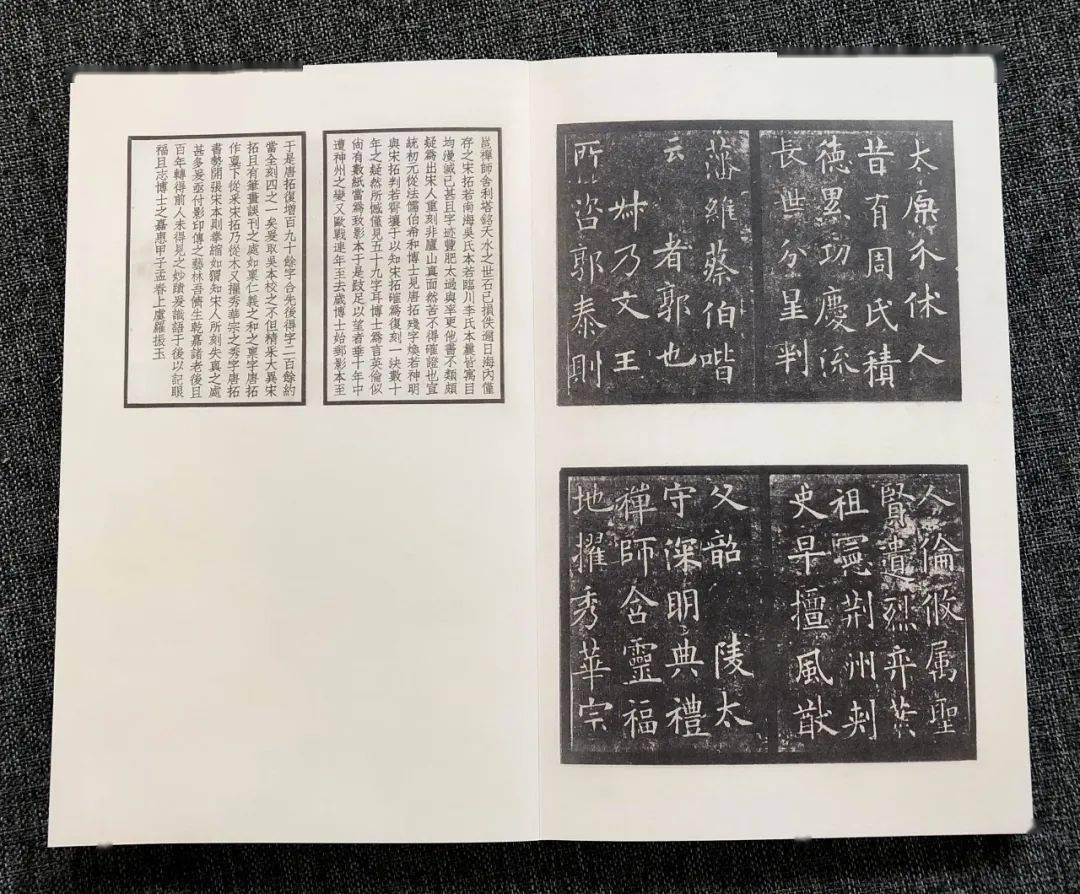 太原介休人
昔有周氏積
德累功慶流
長世分星判
藩維蔡伯喈
云 者郭也
叔乃文王
所咨郭泰則
人倫攸属聖
賢遺烈弈葉
祖憲荆州刾
史早擅風猷
父韶 陵太
守深明典禮
禅師含靈福
地擢秀華宗
邕禪師舍利塔銘天水之世石已損佚邇日海內僅
存之宋拓若南海吳氏本若臨川李氏本曩皆寓目
均漫滅已甚且字迹豐肥太過與率更他書不類頗
疑爲出宋人重刻非廬山真面然苦不得確證也宣
統初元從法儒伯希和博士見唐拓殘字煥若神明
與宋拓判若霄壤于以知宋拓確爲復刻一決數十
年之疑然所憾僅見五十九字耳博士爲言英倫似
尚有數紙當爲致影本于是跂足以望者垂十年中
遭神州之變又歐戰連年至去歲博士始郵影本至
于是唐拓復增百九十餘字合先後得字二百餘約
當全刻四之一矣爰取吳本校之不但精采大異宋
拓且有筆畫誤刊之處如稟仁義之和之稟字唐拓
作稟下從釆宋拓乃從木又擢秀華宗之秀字唐拓
書勢開張宋本則拳縮如猬知宋人所刻失真之處
甚多爰亟付影印傳之藝林吾儕生乾嘉諸老後且
百年轉得前人未得見之妙蹟爰識語于後以記眼
福且志博士之嘉惠甲子孟春上虞羅振玉